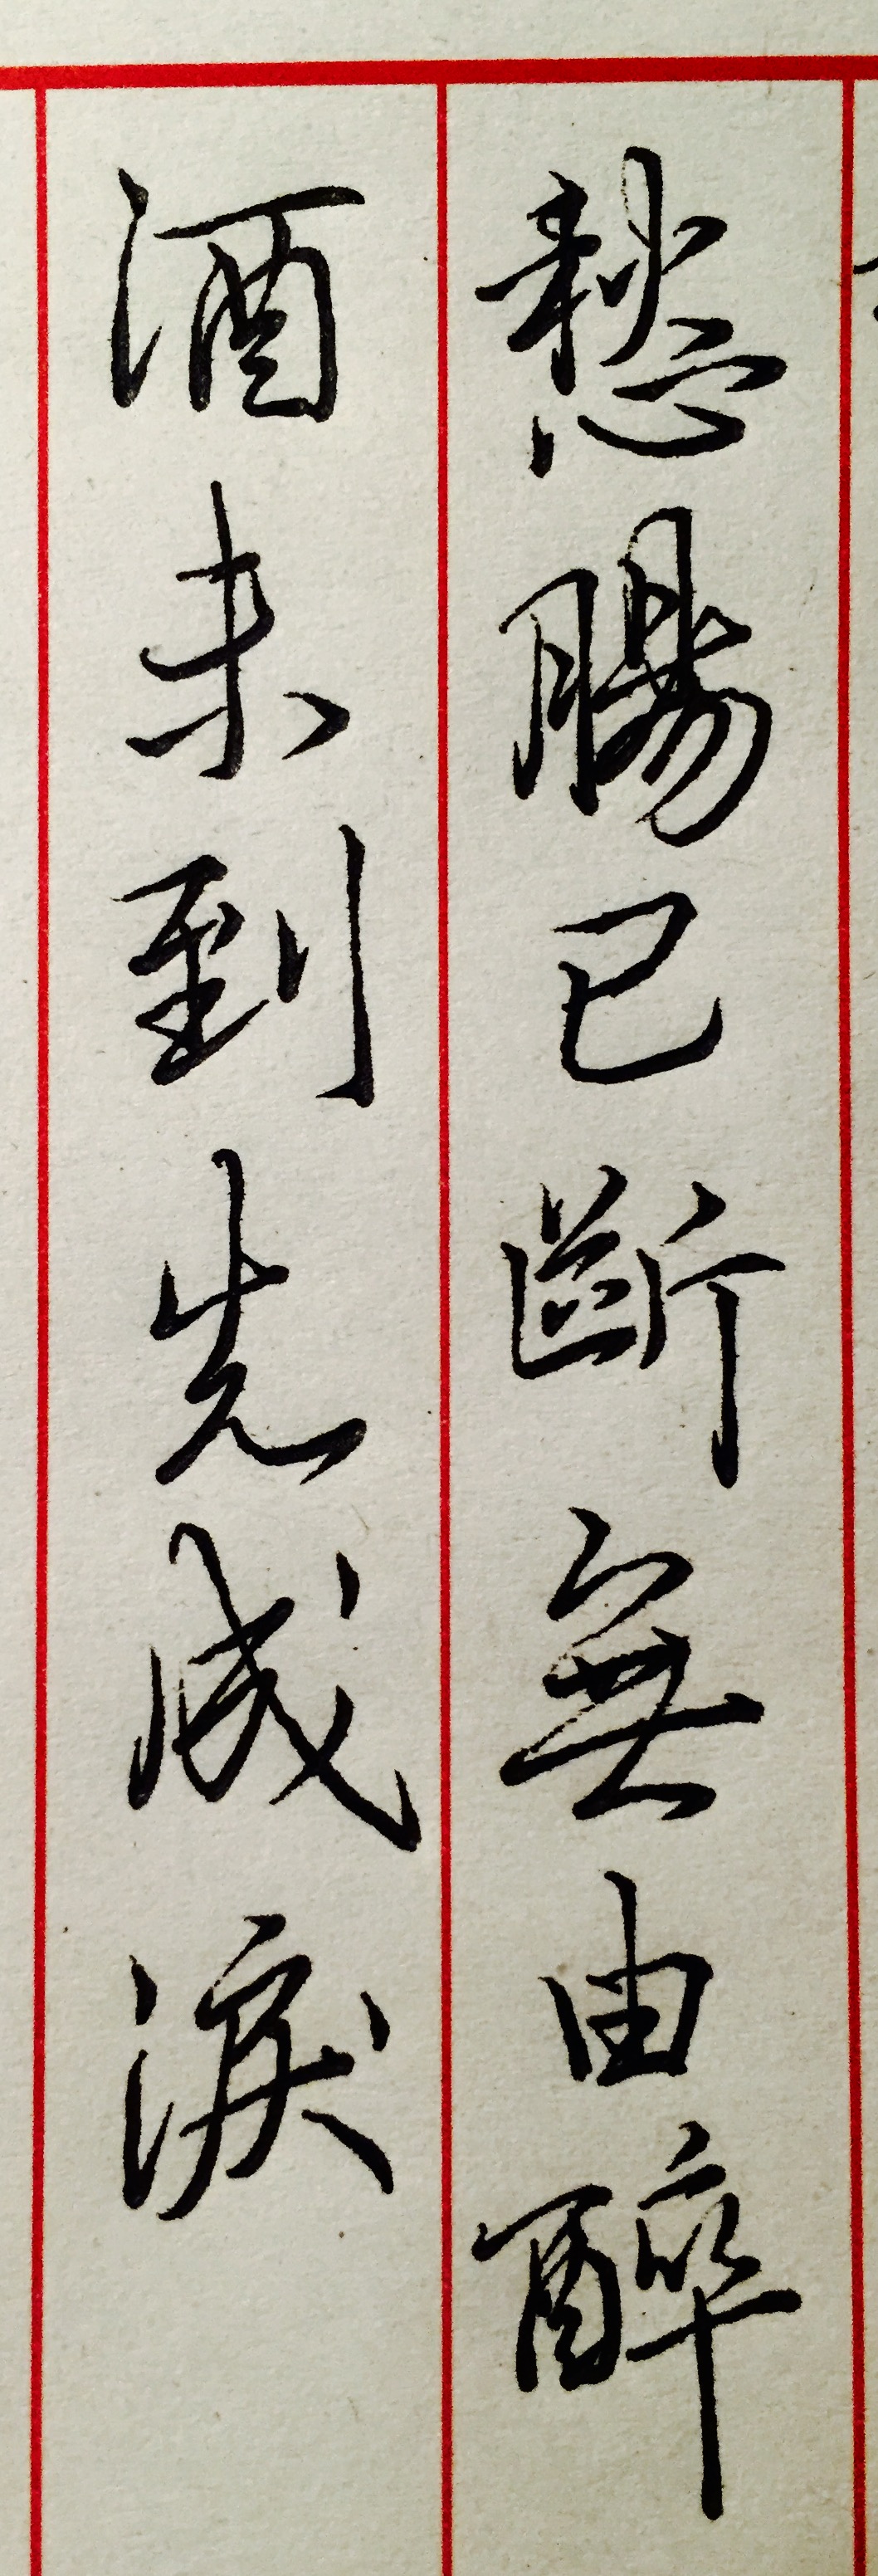 愁腸已斷無由醉
酒未到先成淚